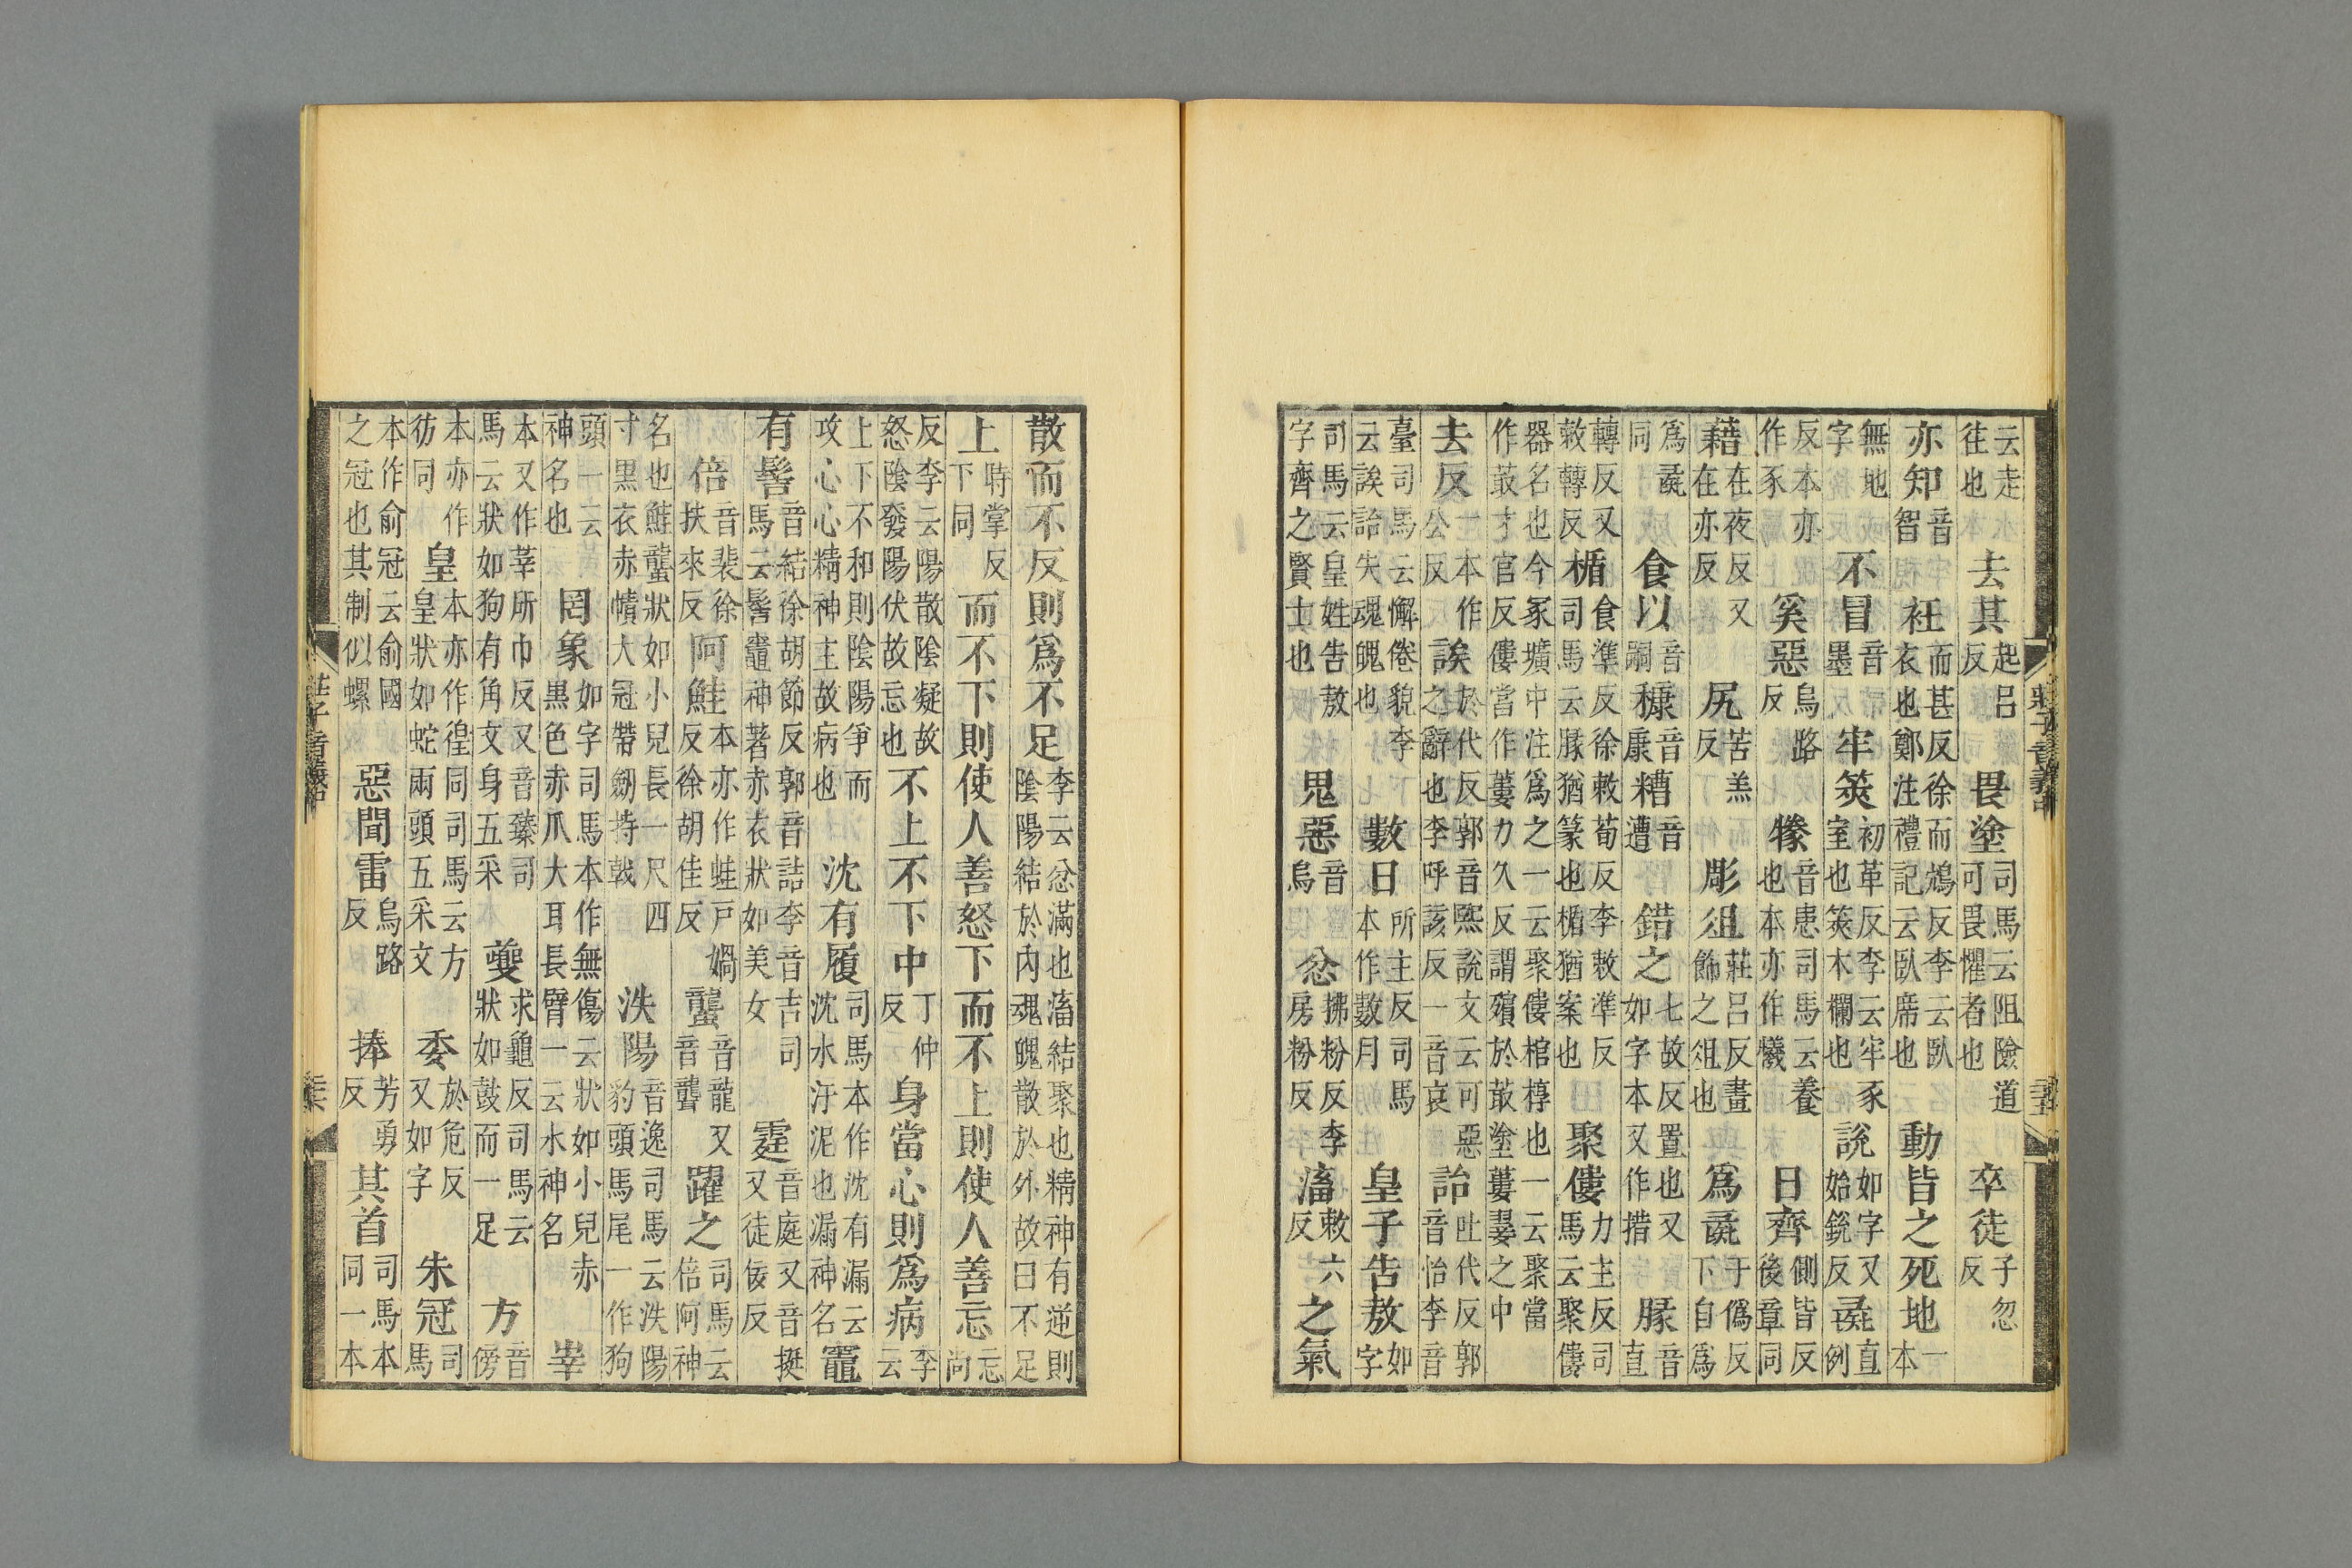 云走往也去其起呂反畏塗司馬云阻險道可畏懼者也卒徒子忽反
亦知音智衽而甚反徐而鴆反李云臥衣也鄭注禮記云臥席也動皆之死地一本
無地字不冒音墨牢筴初革反李云牢豕室也筴木欄也說如字又始銳反彘直例
反本亦作豕奚惡烏路反㹖音患司馬云養也本亦作犧日齊側皆反後章同
藉在夜反又在亦反尻苦羔反彫俎莊呂反畫飾之俎也爲彘于僞反下自爲
爲彘同食以音嗣糠音康糟音遭錯之七故反置也又如字本又作措腞音直
轉反又敕轉反楯食準反徐敕荀反李敕準反司馬云腞猶篆也楯猶案也聚僂力主反司馬云聚僂
器名也今冢壙中注爲之一云聚僂棺椁也一云聚當作菆才官反僂當作蔞力久反謂殯於菆塗蔞翣之中
去反一本作公反誒於代反郭音熙說文云可惡之辭也李呼該反一音哀詒吐代反郭音怡李音
臺司馬云懈倦貌李云誒詒失魂魄也數日所主反司馬本作數月皇子告敖如字
司馬云皇姓告敖字齊之賢士也鬼惡音烏忿拂粉反李房粉反滀敕六反之氣
莊子音義中
散而不反則爲不足李云忿滿也滀結聚也精神有逆則陰陽結於內魂魄散於外故曰不足
上時掌反下同而不下則使人善怒下而不上則使人善忘忘尚
反李云陽散陰凝故怒陰發陽伏故忘也不上不下中丁仲反身當心則爲病李云
上下不和則陰陽爭而攻心心精神主故病也沈有履司馬本作沈有漏云沈水汙泥也漏神名竈
有髻音結徐胡節反郭音詰李音吉司馬云髻竈神著赤衣狀如美女霆音庭又音挺又徒佞反
倍音裴徐扶來反阿鮭本亦作蛙戶媧反徐胡佳反蠪音龍又音聾躍之司馬云倍阿神
名也鮭蠪狀如小兒長一尺四寸黑衣赤幘大冠帶劒持戟泆陽音逸司馬云泆陽豹頭馬尾一作狗
頭一云神名也罔象如字司馬本作無傷云狀如小兒赤黑色赤爪大耳長臂一云水神名峷
本又作莘所巾反又音臻司馬云狀如狗有角文身五采夔求龜反司馬云狀如鼓而一足方音傍
本亦作彷同皇本亦作徨同司馬云方皇狀如蛇兩頭五采文委於危反又如字朱冠司馬
本作俞冠云俞國之冠也其制似螺惡聞雷烏路反捧芳勇反其首司馬本同一本